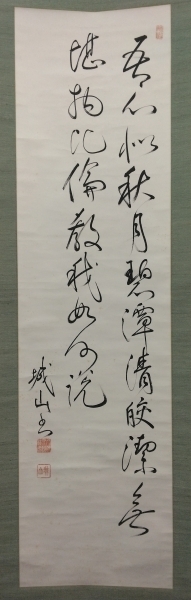 吾心似秋月碧潭清皎潔無
堪物比倫教我如何説
城山書